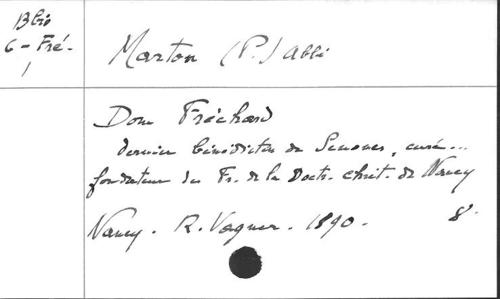 Bbio
C - Fré -
1
Marton (P.) abbé
Dom Fréchard
dernier bénédictin de Senones, curé...
fondateur des Fr. de la Doctr. chrét. de Nancy
Nancy. R. Vagner. 1890. 8°